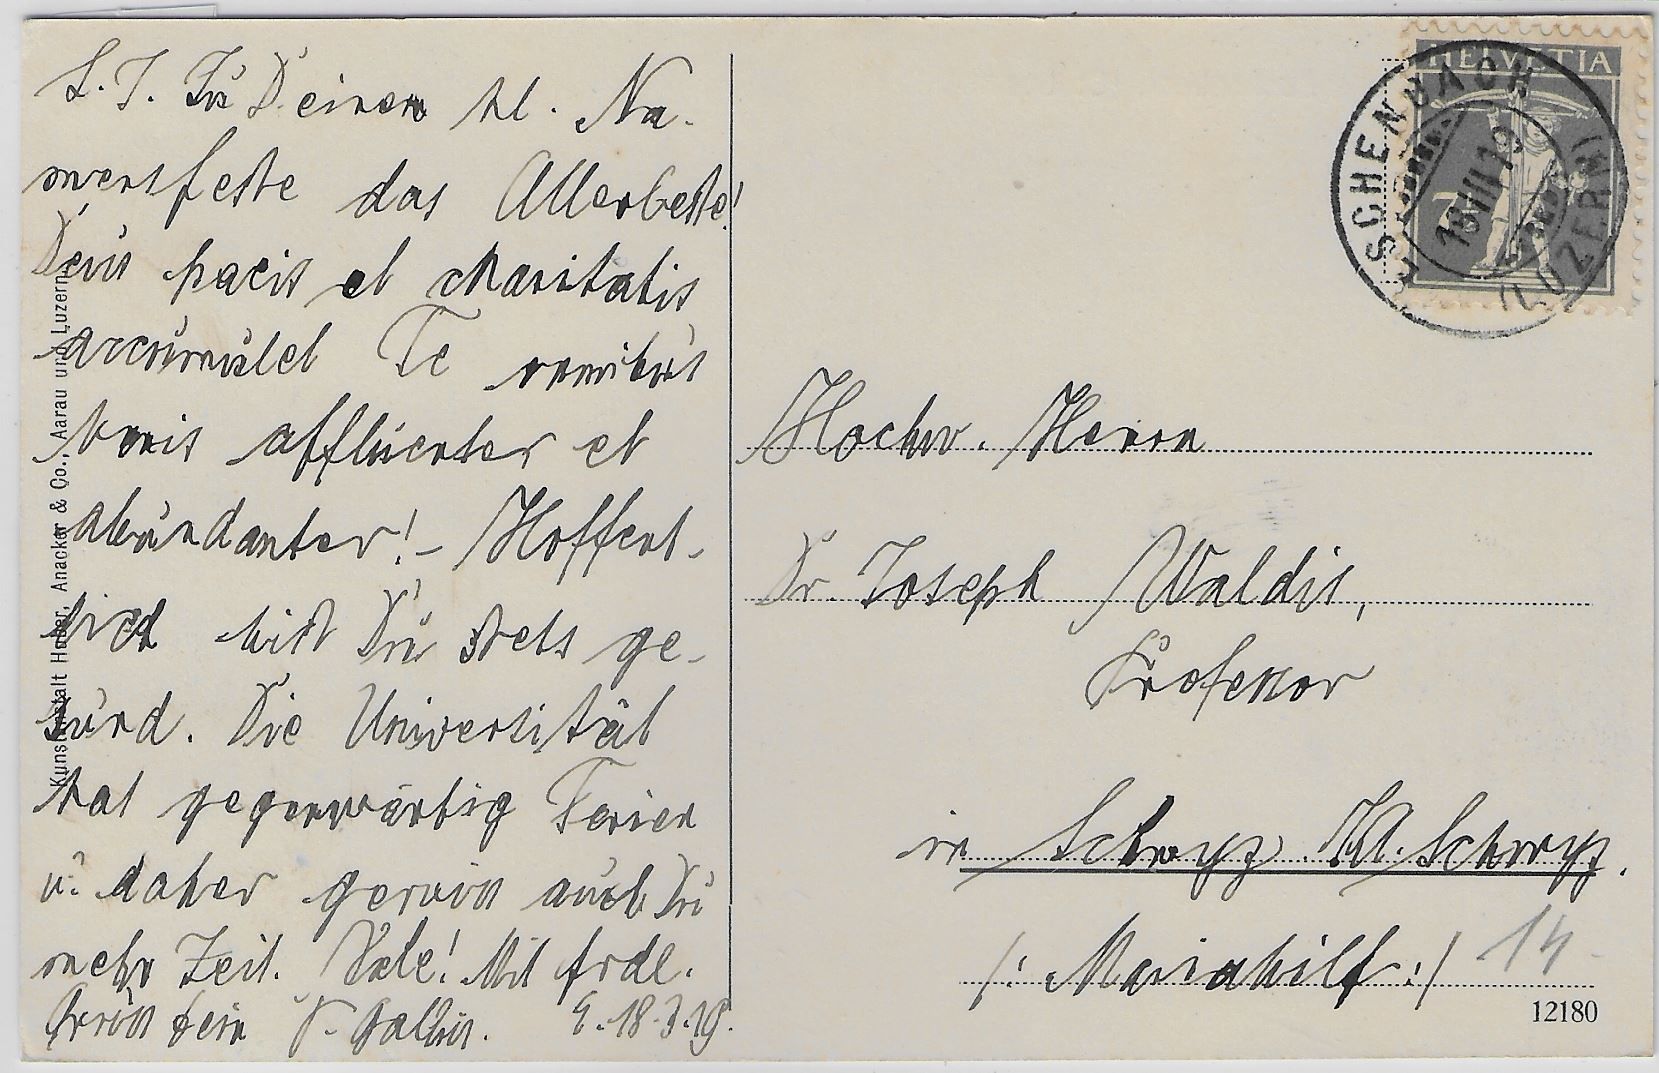 L. J. Zu Deinem hl. Na-
mensfeste das Allerbeste!
Deus pacis et charitatis
accumulet Te omnibus
bonis affluenter et
abundanter! – Hoffent-
lich bist Du stets ge-
sund. Die Universität
hat gegenwärtig Ferien
u. daher gewiss auch Du
mehr Zeit. Vale! Mit frdl.
Gruss Dein P. Gallus. E. 18.3.19.
Kunstanstalt Huber, Anacker & Co., Aarau und Luzern.
HELVETIA
7½
ESCHENBACH
18.III.19
(LUZERN)
Hochw. Herrn
Dr. Joseph Waldis,
Professor
in Schwyz. Kt. Schwyz.
/: Mariahilf :/
14
12180